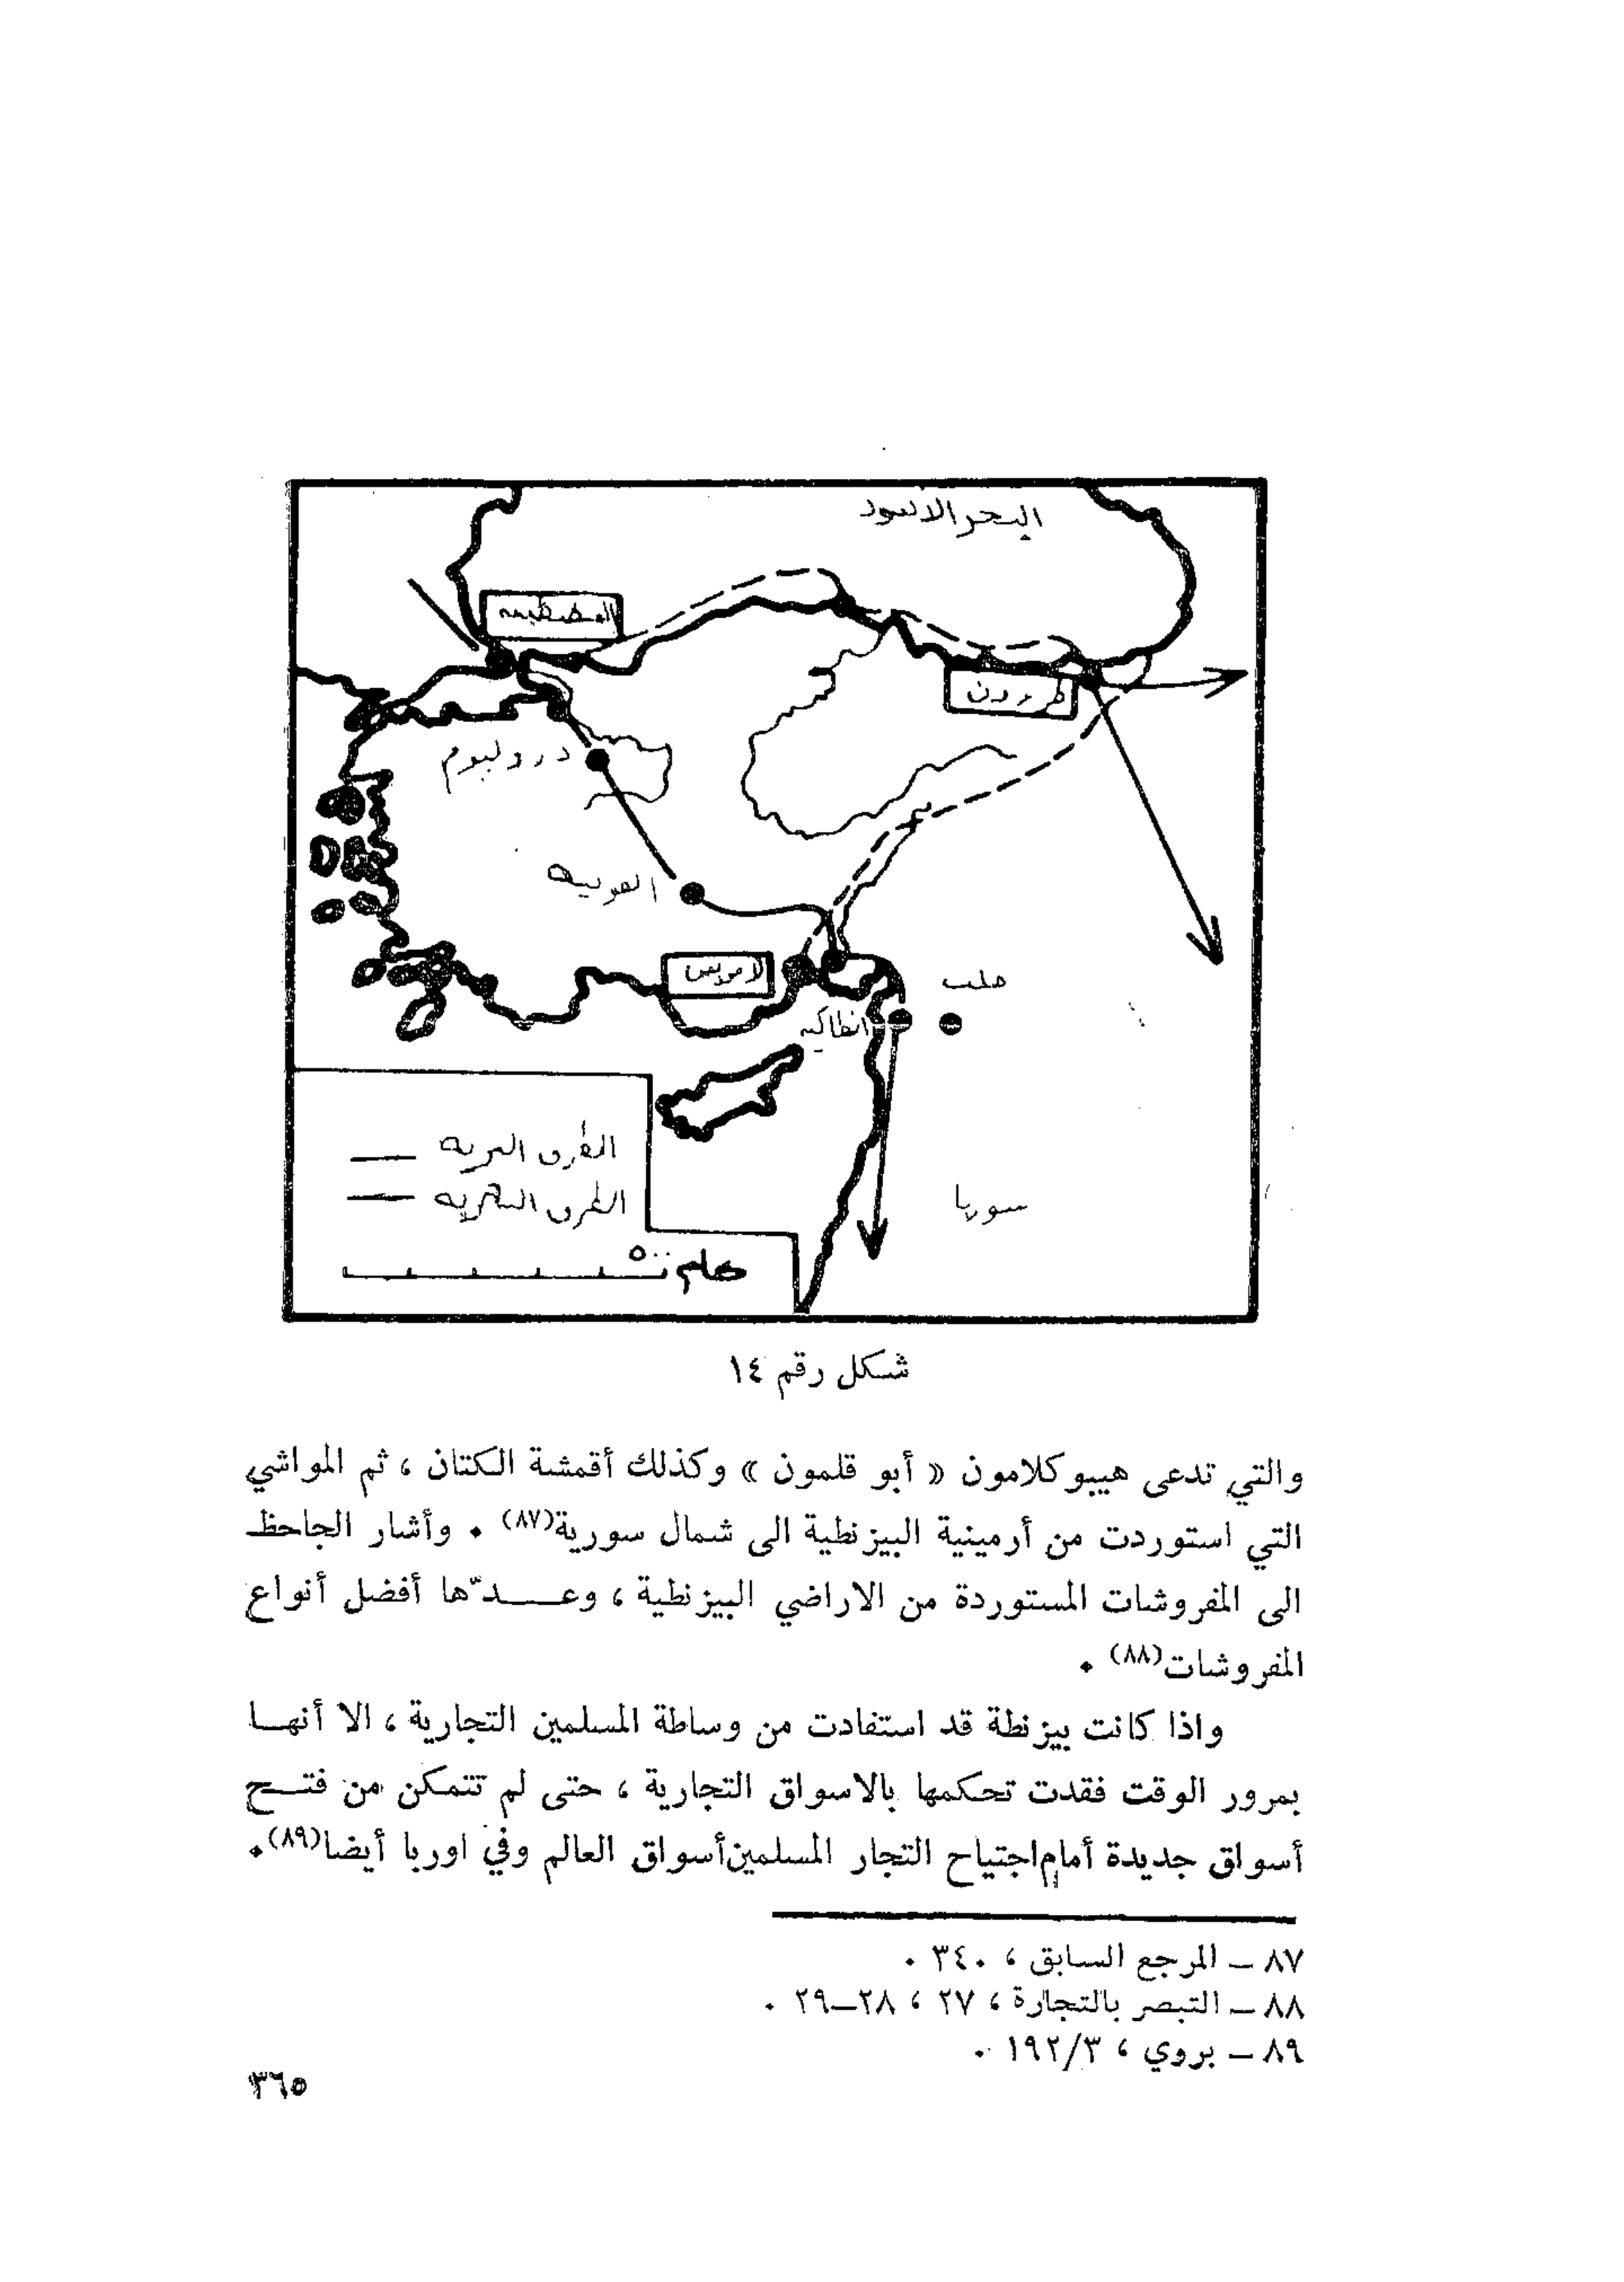 البحر الاسود
طربزون
دروليوم
القونيه
اللامويس
حلب
انطاكيه
سوريا
الطرق البريه
الطرق البحريه
٥٠٠ كلم
شكل رقم ١٤
والتي تدعى هيبوكلامون « أبو قلمون » وكذلك أقمشة الكتان ، ثم المواشي
التي استوردت من أرمينية البيزنطية الى شمال سورية(٨٧) . وأشار الجاحظ
الى المفروشات المستوردة من الاراضي البيزنطية ، وعـــدّها أفضل أنواع
المفروشات(٨٨) .
واذا كانت بيزنطة قد استفادت من وساطة المسلمين التجارية ، الا أنهـا
بمرور الوقت فقدت تحكمها بالاسواق التجارية ، حتى لم تتمكن من فتـح
أسواق جديدة أمام اجتياح التجار المسلمين أسواق العالم وفي اوربا أيضا(٨٩).
٨٧ – المرجع السابق ، ٣٤٠ .
٨٨ – التبصر بالتجارة ، ٢٧ ، ٢٨–٢٩ .
٨٩ – بروي ، ١٩٢/٣ .
٣٦٥